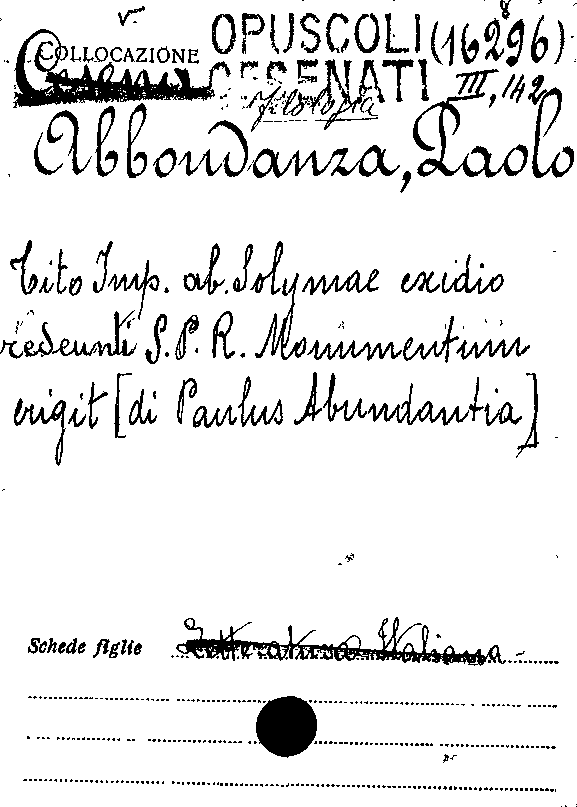 COLLOCAZIONE OPUSCOLI (16296)
Cesena CESENATI III, 142
filologia
Abbondanza, Paolo
Tito Imp. ab. Solymae exidio
redeunti S. P. R. Monumentum
erigit [di Paulus Abundantia]
Schede figlie Letteratura Italiana -